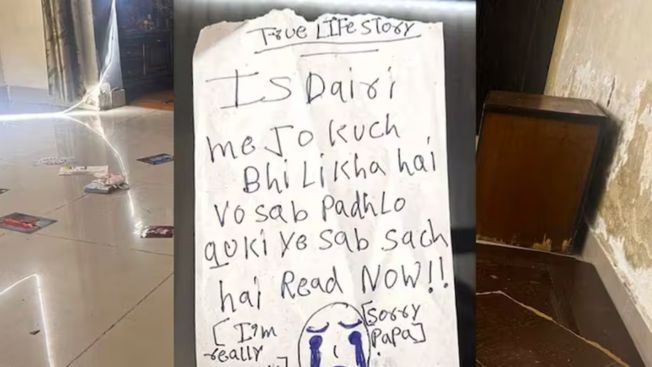 True LIFe Story
Is Dairi
me Jo kuch
Bhi Likha hai
Vo sab Padhlo
quki ye sab sach
hai Read NOW!!
[I'm [Sorry
really Papa]